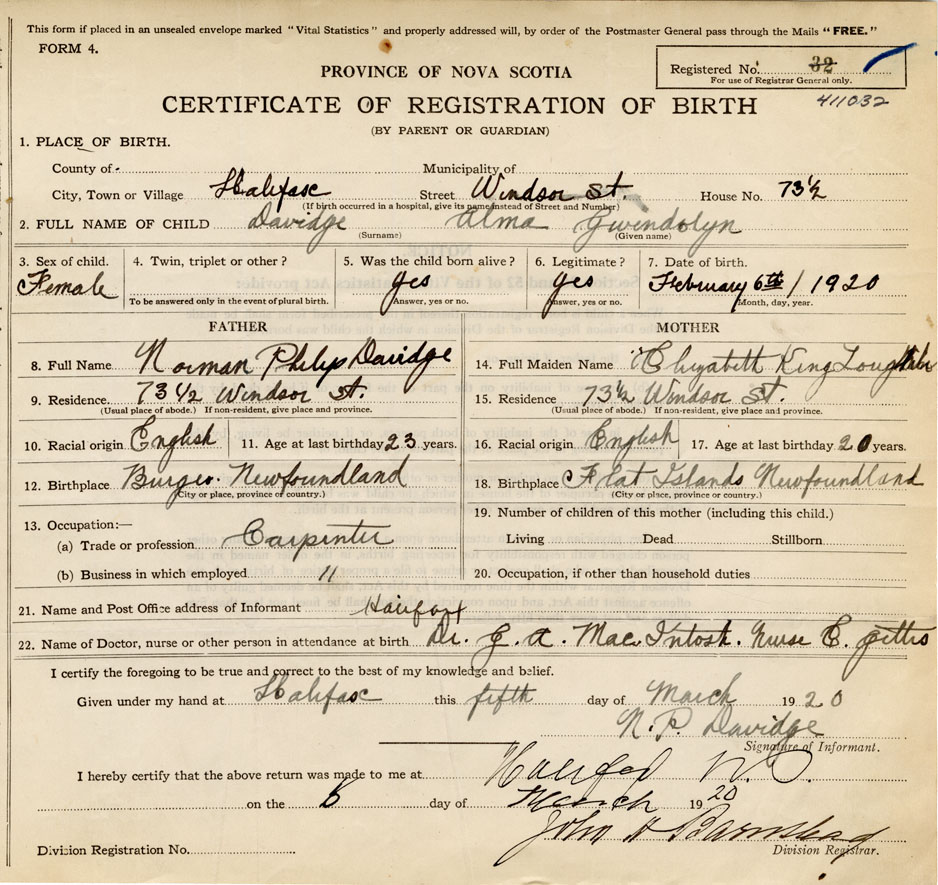 This form if placed in an unsealed envelope marked "Vital Statistics" and properly addressed will, by order of the Postmaster General pass through the Mails "FREE."
FORM 4.
PROVINCE OF NOVA SCOTIA
Registered No. 32
For use of Registrar General only.
411032
CERTIFICATE OF REGISTRATION OF BIRTH
(BY PARENT OR GUARDIAN)
1. PLACE OF BIRTH.
County of - Municipality of
City, Town or Village Halifax Street Windsor St. House No. 73½
(If birth occurred in a hospital, give its name instead of Street and Number)
2. FULL NAME OF CHILD Davidge Alma Gwendolyn
(Surname) (Given name)
3. Sex of child. 4. Twin, triplet or other? 5. Was the child born alive? 6. Legitimate? 7. Date of birth.
Female yes yes February 6th / 1920
To be answered only in the event of plural birth. Answer, yes or no. Answer, yes or no. Month, day, year.
FATHER MOTHER
8. Full Name Norman Philip Davidge 14. Full Maiden Name Elizabeth King
9. Residence 73 1/2 Windsor St. 15. Residence 73½ Windsor St.
(Usual place of abode.) If non-resident, give place and province. (Usual place of abode.) If non-resident, give place and province.
10. Racial origin English 11. Age at last birthday 23 years. 16. Racial origin English 17. Age at last birthday 20 years.
12. Birthplace Burgeo. Newfoundland 18. Birthplace Flat Islands Newfoundland
(City or place, province or country.) (City or place, province or country.)
13. Occupation:— 19. Number of children of this mother (including this child.)
(a) Trade or profession Carpenter Living Dead Stillborn
(b) Business in which employed " 20. Occupation, if other than household duties
21. Name and Post Office address of Informant Halifax
22. Name of Doctor, nurse or other person in attendance at birth Dr. G. A. MacIntosh. Nurse E. Gettis
I certify the foregoing to be true and correct to the best of my knowledge and belief.
Given under my hand at Halifax this fifth day of March 1920
N. P. Davidge
Signature of Informant.
I hereby certify that the above return was made to me at Halifax N.S.
on the 5 day of March 1920
John H Barnstead
Division Registrar.
Division Registration No.